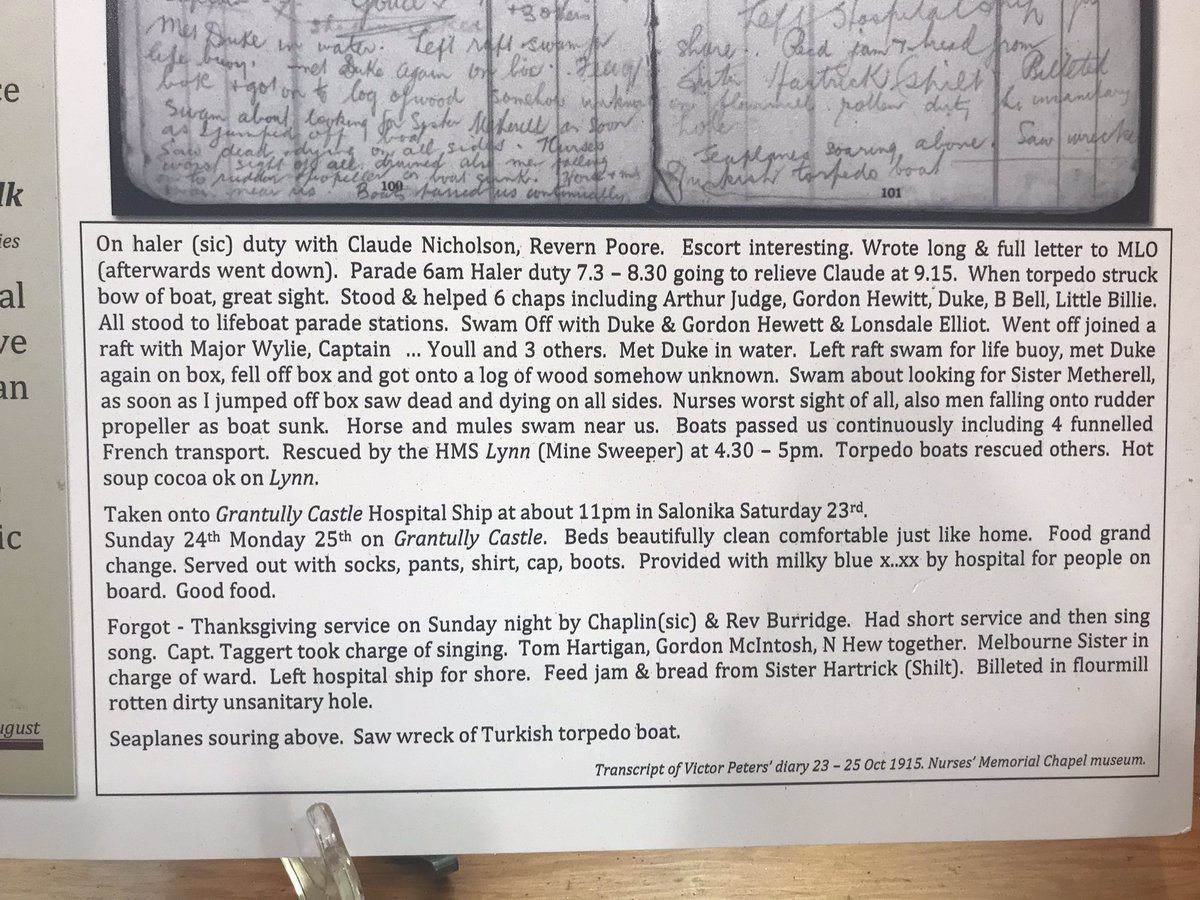 ce
lk
ies
al
ve
an
ic
ugust
+ 3 others
Met Duke in water. Left raft swam for
life buoy. met Duke again on box. 
+ got on to log of wood somehow
Swam about looking for Sister Metherell as soon
as I jumped off boat
Saw dead + dying on all sides. Nurses
worst sight of all
100
Left Hospital
shore. Feed jam + bread from
Sister Hartrick (Shilt) Billeted
in flourmill rotten dirty
hole
Seaplanes soaring above. Saw wreck
Turkish torpedo boat
101
On haler (sic) duty with Claude Nicholson, Revern Poore. Escort interesting. Wrote long & full letter to MLO
(afterwards went down). Parade 6am Haler duty 7.3 – 8.30 going to relieve Claude at 9.15. When torpedo struck
bow of boat, great sight. Stood & helped 6 chaps including Arthur Judge, Gordon Hewitt, Duke, B Bell, Little Billie.
All stood to lifeboat parade stations. Swam Off with Duke & Gordon Hewett & Lonsdale Elliot. Went off joined a
raft with Major Wylie, Captain ... Youll and 3 others. Met Duke in water. Left raft swam for life buoy, met Duke
again on box, fell off box and got onto a log of wood somehow unknown. Swam about looking for Sister Metherell,
as soon as I jumped off box saw dead and dying on all sides. Nurses worst sight of all, also men falling onto rudder
propeller as boat sunk. Horse and mules swam near us. Boats passed us continuously including 4 funnelled
French transport. Rescued by the HMS Lynn (Mine Sweeper) at 4.30 – 5pm. Torpedo boats rescued others. Hot
soup cocoa ok on Lynn.
Taken onto Grantully Castle Hospital Ship at about 11pm in Salonika Saturday 23rd.
Sunday 24th Monday 25th on Grantully Castle. Beds beautifully clean comfortable just like home. Food grand
change. Served out with socks, pants, shirt, cap, boots. Provided with milky blue x..xx by hospital for people on
board. Good food.
Forgot - Thanksgiving service on Sunday night by Chaplin(sic) & Rev Burridge. Had short service and then sing
song. Capt. Taggert took charge of singing. Tom Hartigan, Gordon McIntosh, N Hew together. Melbourne Sister in
charge of ward. Left hospital ship for shore. Feed jam & bread from Sister Hartrick (Shilt). Billeted in flourmill
rotten dirty unsanitary hole.
Seaplanes souring above. Saw wreck of Turkish torpedo boat.
Transcript of Victor Peters' diary 23 – 25 Oct 1915. Nurses' Memorial Chapel museum.